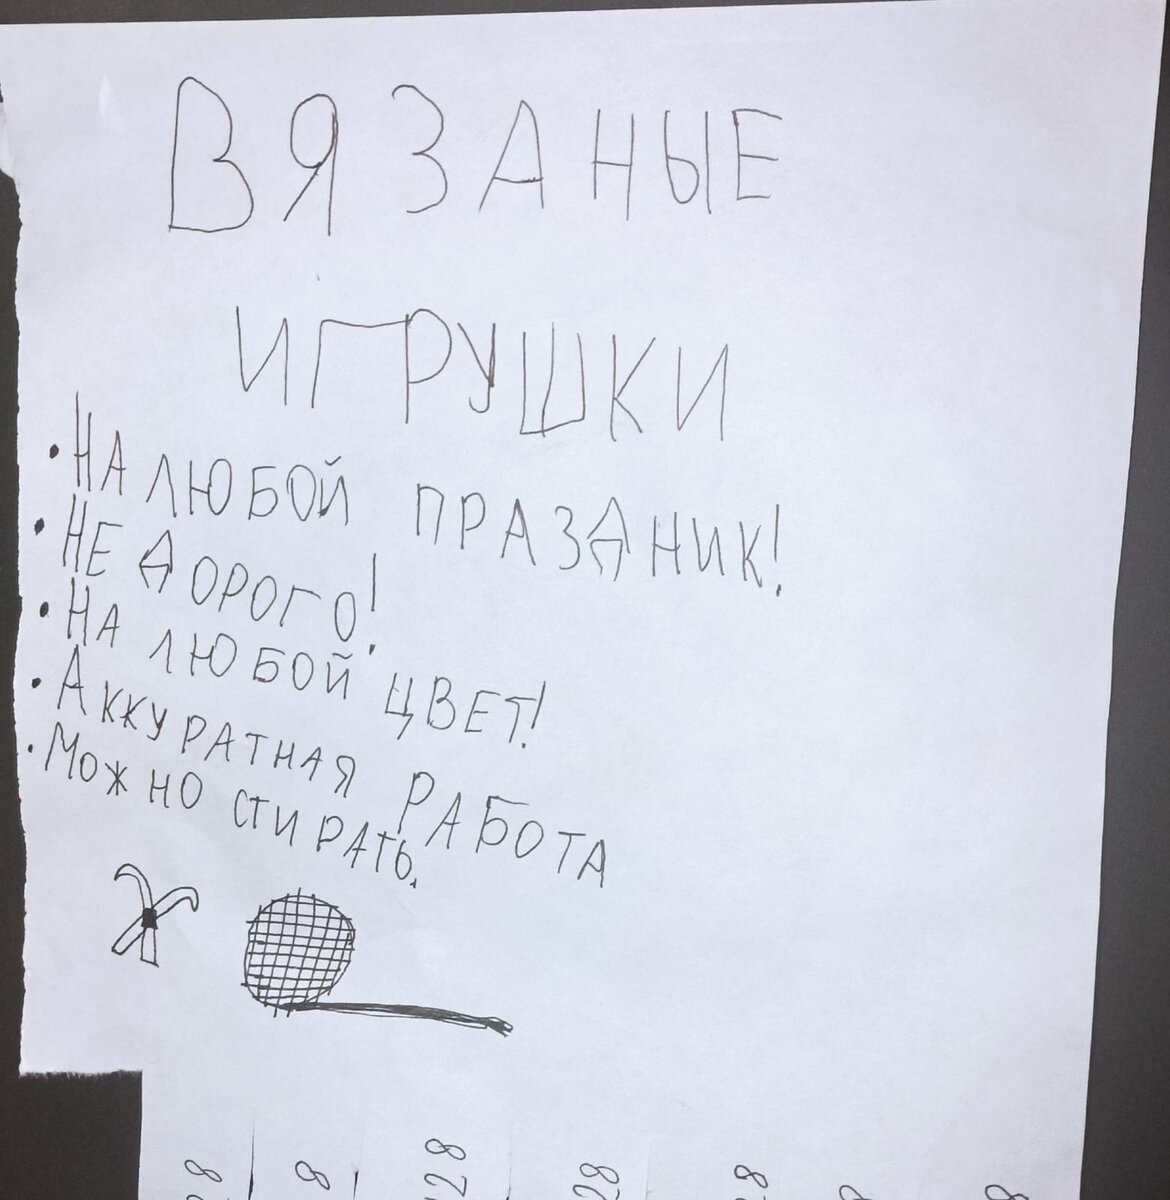 ВЯЗАНЫЕ
ИГРУШКИ
• НА ЛЮБОЙ ПРАЗДНИК!
• НЕ ДОРОГО!
• НА ЛЮБОЙ ЦВЕТ!
• АККУРАТНАЯ РАБОТА
• МОЖНО СТИРАТЬ.
28 8 128 28 28 8 8